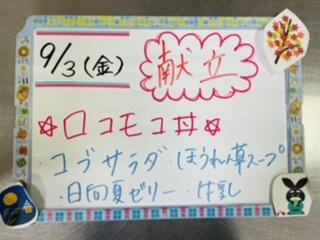 9/3(金) 献立
☆ロコモコ丼☆
・コブサラダ・ほうれん草スープ
・日向夏ゼリー・牛乳